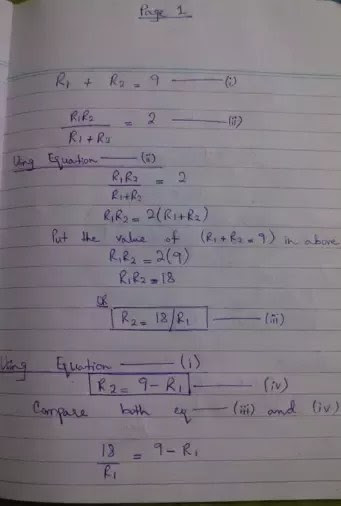 Page 1
R₁ + R₂ = 9 —— (i)
R₁R₂/R₁+R₂ = 2 —— (ii)
Using Equation —— (ii)
R₁R₂/R₁+R₂ = 2
R₁R₂ = 2(R₁+R₂)
Put the value of (R₁+R₂ = 9) in above
R₁R₂ = 2(9)
R₁R₂ = 18
OR
R₂ = 18/R₁ —— (iii)
Using Equation —— (i)
R₂ = 9 - R₁ —— (iv)
Compare both eq —— (iii) and (iv)
18/R₁ = 9 - R₁